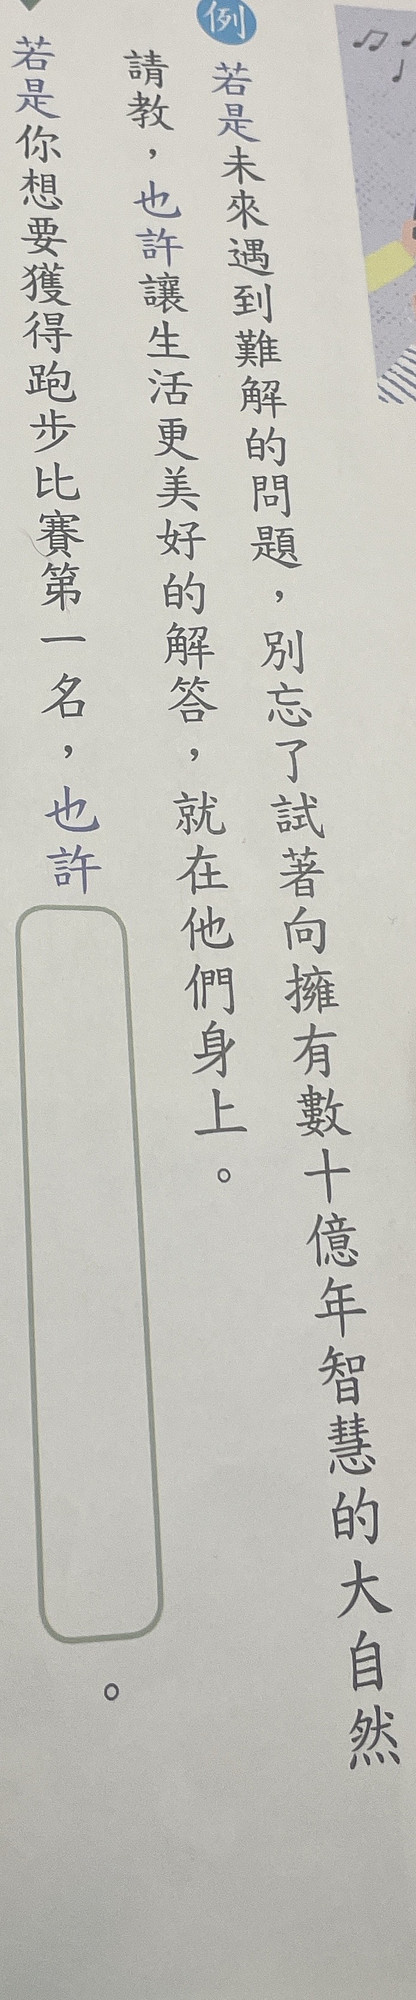 例
若是未來遇到難解的問題，別忘了試著向擁有數十億年智慧的大自然
請教，也許讓生活更美好的解答，就在他們身上。
若是你想要獲得跑步比賽第一名，也許
。